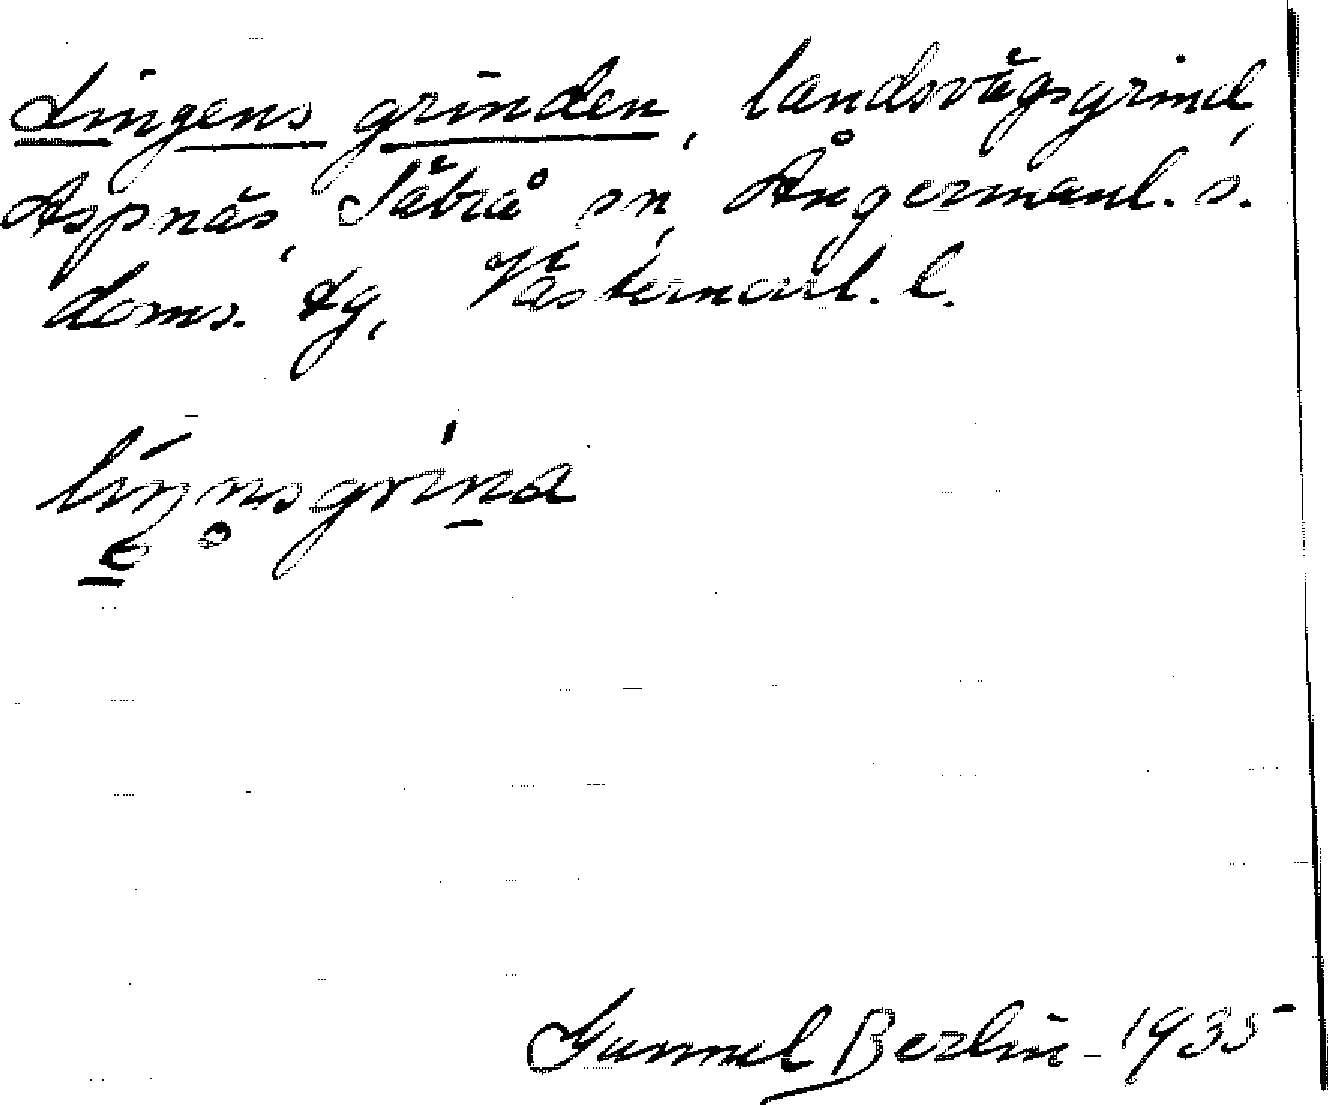 Lingens grinden, landsvägsgrind,
Aspnäs, Säbrå sn, Ångermanl. s.
doms. dg, Västernorrl. l.
Gunnel Berlin 1935